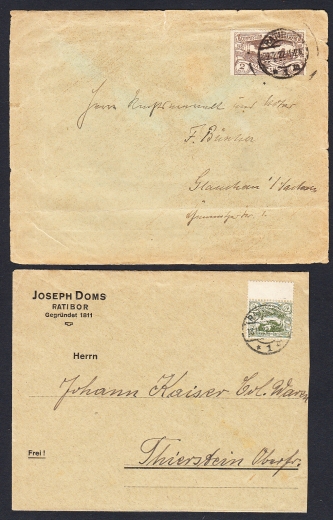 2
Herrn Rechtsanwalt und Notar
F. Büntner
Glauchau i/Sachsen
JOSEPH DOMS
RATIBOR
Gegründet 1811
Herrn
Johann Kaiser Col. Waren
Frei!
Thierstein Oberfr.